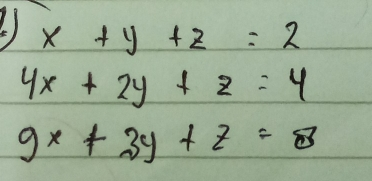 x + y + z = 2
4x + 2y + z = 4
9x + 3y + z = 8